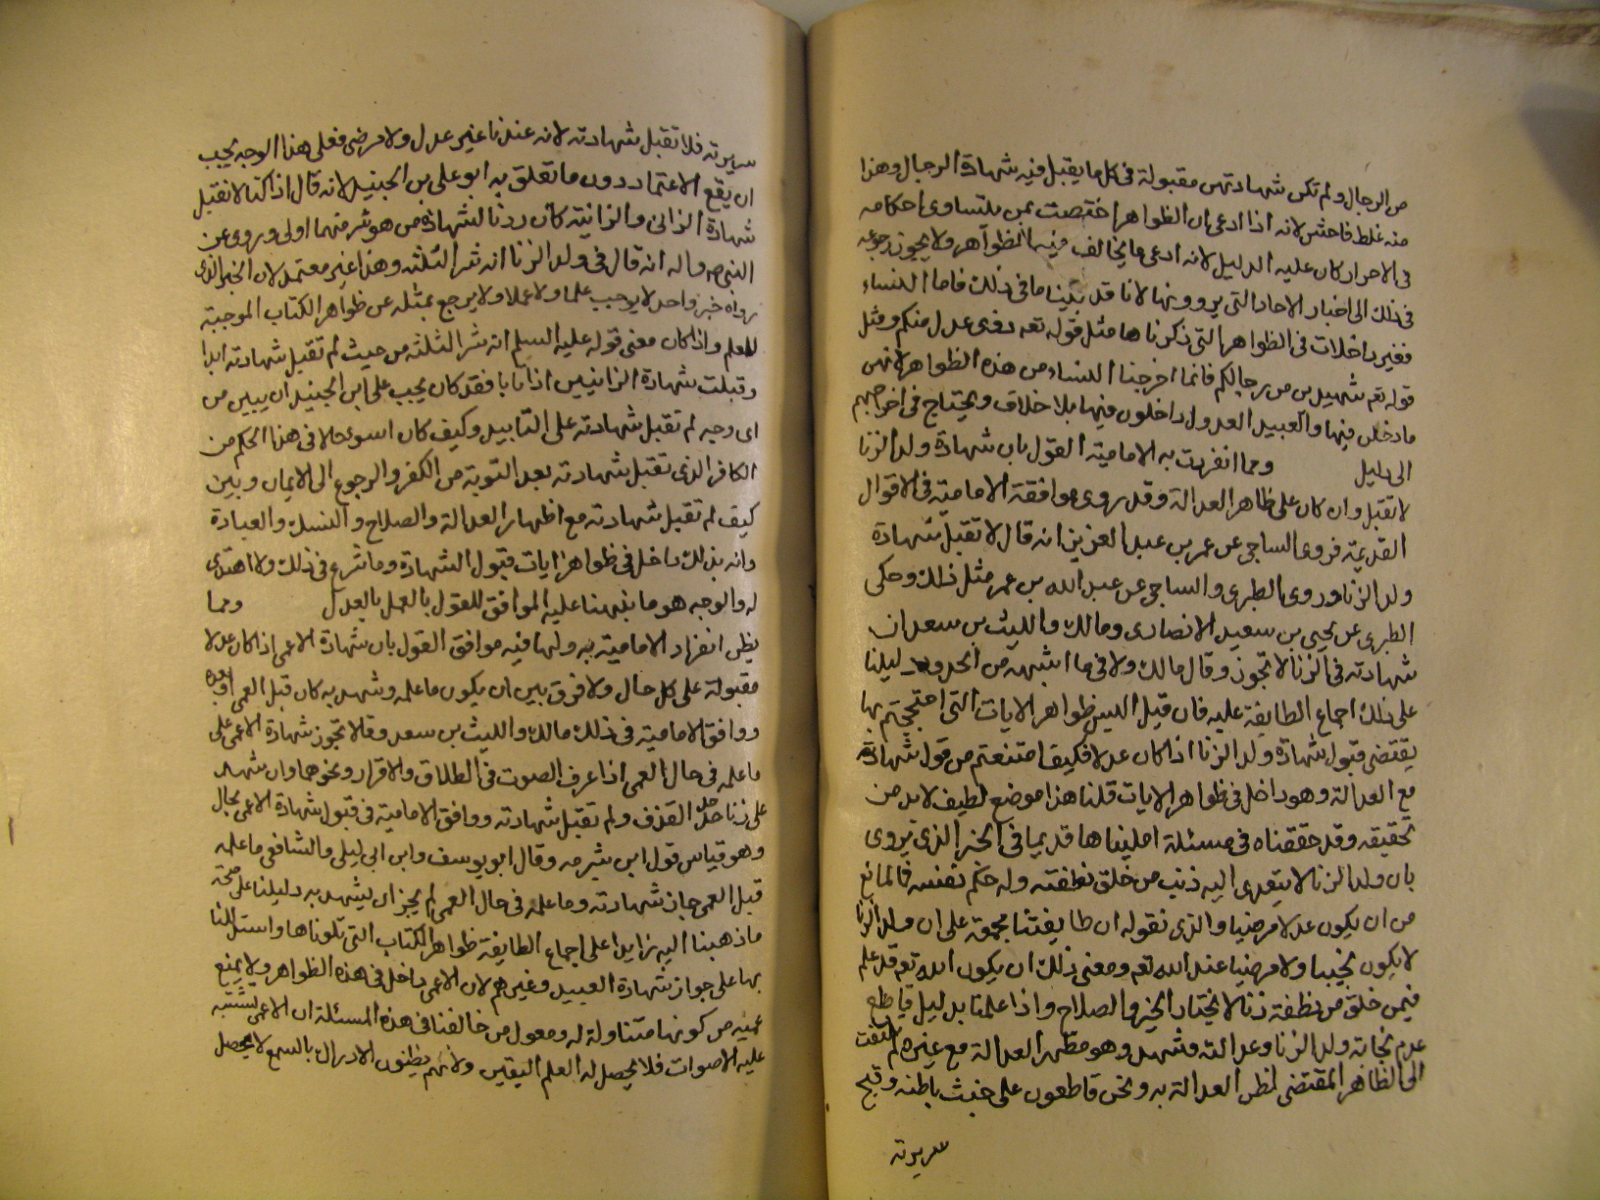 من الرجال ولم تكن شهادتهن مقبولة فى كل ما يقبل فيه شهادة الرجال وهذا
منه غلط فاحش لانه اذا ادعى ان الظواهر اختصت بمن يتساوى احكامه
فى الاحرار كان عليه الدليل لانه ادعى ما يخالف فيه الظواهر ولا يجوز رجوعه
فى ذلك الى اخبار الاحاد التى يروونها لانا قد بينا ما فى ذلك فاما النساء
فغير داخلات فى الظواهر التى ذكرناها مثل قوله تعه ذوى عدل منكم ومثل
قوله تعه شهيدين من رجالكم فانما اخرجنا النساء من هذه الظواهر لانهن
ما دخلن فيها والعبيد العدول داخلون فيها بلا خلاف ويحتاج فى اخراجهم
الى دليل ومما انفردت به الامامية القول بان شهادة ولد الزنا
لا تقبل وان كان على ظاهر العدالة وقد روى موافقة الامامية فى الاقوال
القديمة فروى الساجى عن عمر بن عبد العزيز انه قال لا تقبل شهادة
ولد الزنا وروى الطبرى والساجى عن عبد الله بن عمر مثل ذلك وحكى
الطبرى عن يحيى بن سعيد الانصارى ومالك والليث بن سعد ان
شهادته فى الزنا لا تجوز وقال مالك ولا فى ما اشبهه من الحدود دليلنا
على ذلك اجماع الطايفة عليه فان قيل اليس ظواهر الايات التى احتججتم بها
يقتضى قبول شهادة ولد الزنا اذا كان عدلا فكيف امتنعتم من قول شهادة
مع العدالة وهو داخل فى ظواهر الايات قلنا هذا موضع لطيف لابد من
تحقيقه وقد حققناه فى مسئلة امليناها قديما فى الخبر الذى يروى
بان ولد الزنا لا يتعدى اليه ذنب من خلق نطفته وله حكم نفسه فالمانع
من ان يكون عدلا مرضيا والذى نقوله ان طايفتنا مجمعة على ان ولد الزنا
لا يكون نجيبا ولا مرضيا عند الله تعه ومعنى ذلك ان يكون الله تعه قد علم
فيمن خلق من نطفة زنا لا يختار الخير والصلاح واذا علمنا بدليل قاطع
عدم نجابة ولد الزنا وعدالته وشهد وهو مظهر العدالة مع غيره لم يلتفت
الى الظاهر المقتضى لظن العدالة به ونحن قاطعون على خبث باطنه وقبح
سريرته
سريرته فلا تقبل شهادته لانه عندنا غير عدل ولا مرضى فعلى هذا الوجه يجب
ان يقع الاعتماد دون ما تعلق به ابو على بن الجنيد لانه قال اذا كنا لا نقبل
شهادة الزانى والزانية كان ردنا لشهادة من هو شر منهما اولى وروى عن
النبى صه واله انه قال فى ولد الزنا انه شر الثلثه وهذا غير معتمد لان الخبر الذى
رواه خبر واحد لا يوجب علما ولا عملا ولا يرجع بمثله عن ظواهر الكتاب الموجبة
للعلم واذا كان معنى قوله عليه السلم انه شر الثلثه من حيث لم تقبل شهادته ابدا
وقبلت شهادة الزانيين اذا تابا فقد كان يجب على ابن الجنيد ان يبين من
اى وجه لم تقبل شهادته على التابيد وكيف كان اسوء حالا فى هذا الحكم من
الكافر الذى تقبل شهادته بعد التوبة من الكفر والرجوع الى الايمان ويبين
كيف لم تقبل شهادته مع اظهار العدالة والصلاح والنسك والعبادة
وانه بذلك داخل فى ظواهر ايات قبول الشهادة وما شرع فى ذلك ولا اهتدى
له والوجه هو ما نبهنا عليه الموافق للقول بالعدل ومما
يظن انفراد الامامية به ولها فيه موافق القول بان شهادة الاعمى اذا كان عدلا
مقبولة على كل حال ولا فرق بين ان يكون ما علمه وشهد به كان قبل العمى او بعده
ووافق الامامية فى ذلك مالك والليث بن سعد وقالا تجوز شهادة الاعمى على
ما علمه فى حال العمى اذا عرف الصوت فى الطلاق والاقرار ونحوها وان شهد
على زنا حد القذف ولم تقبل شهادته ووافق الامامية فى قبول شهادة الاعمى بحال
وهو قياس قول ابن شبرمه وقال ابو يوسف وابن ابى ليلى والشافعى ما علمه
قبل العمى جاز شهادته وما علمه فى حال العمى لم يجز ان يشهد به دليلنا على صحة
ما ذهبنا اليه زايدا على اجماع الطايفة ظواهر الكتاب التى تلوناها واستدللنا
بها على جواز شهادة العبيد وغيرهم لان الاعمى داخل فى هذه الظواهر ولا يمنع
عميه من كونها متناولة له ومعول من خالفنا فى هذه المسئلة ان الاعمى تشتبه
عليه الاصوات فلا يحصل له العلم اليقين ولانهم يظنون الادراك بالسمع لا يحصل